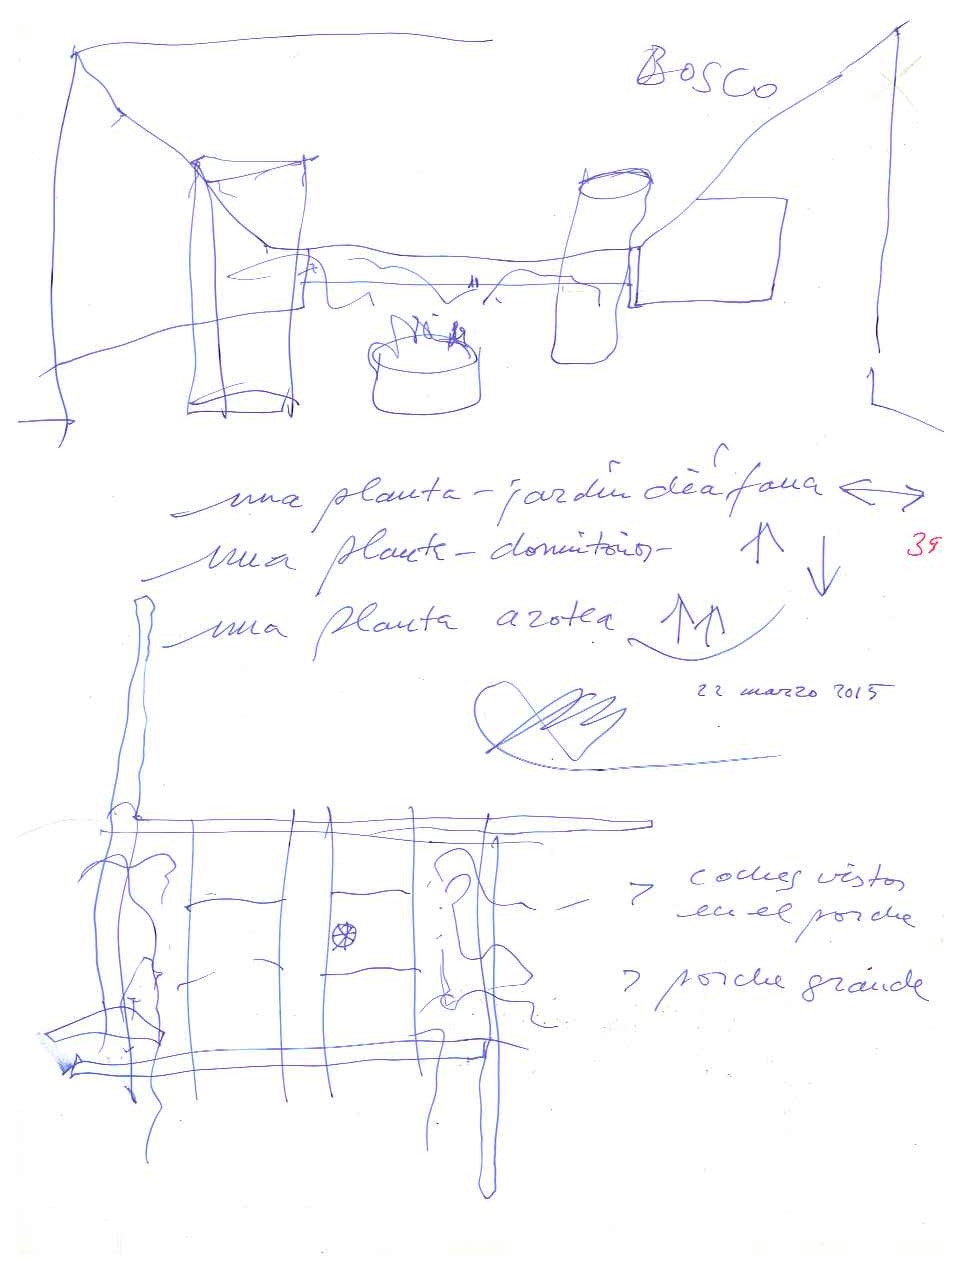 BOSCO
una planta-jardín diáfana
una planta-dormitorios-
39
una planta azotea
22 marzo 2015
coches vistos
en el porche
porche grande